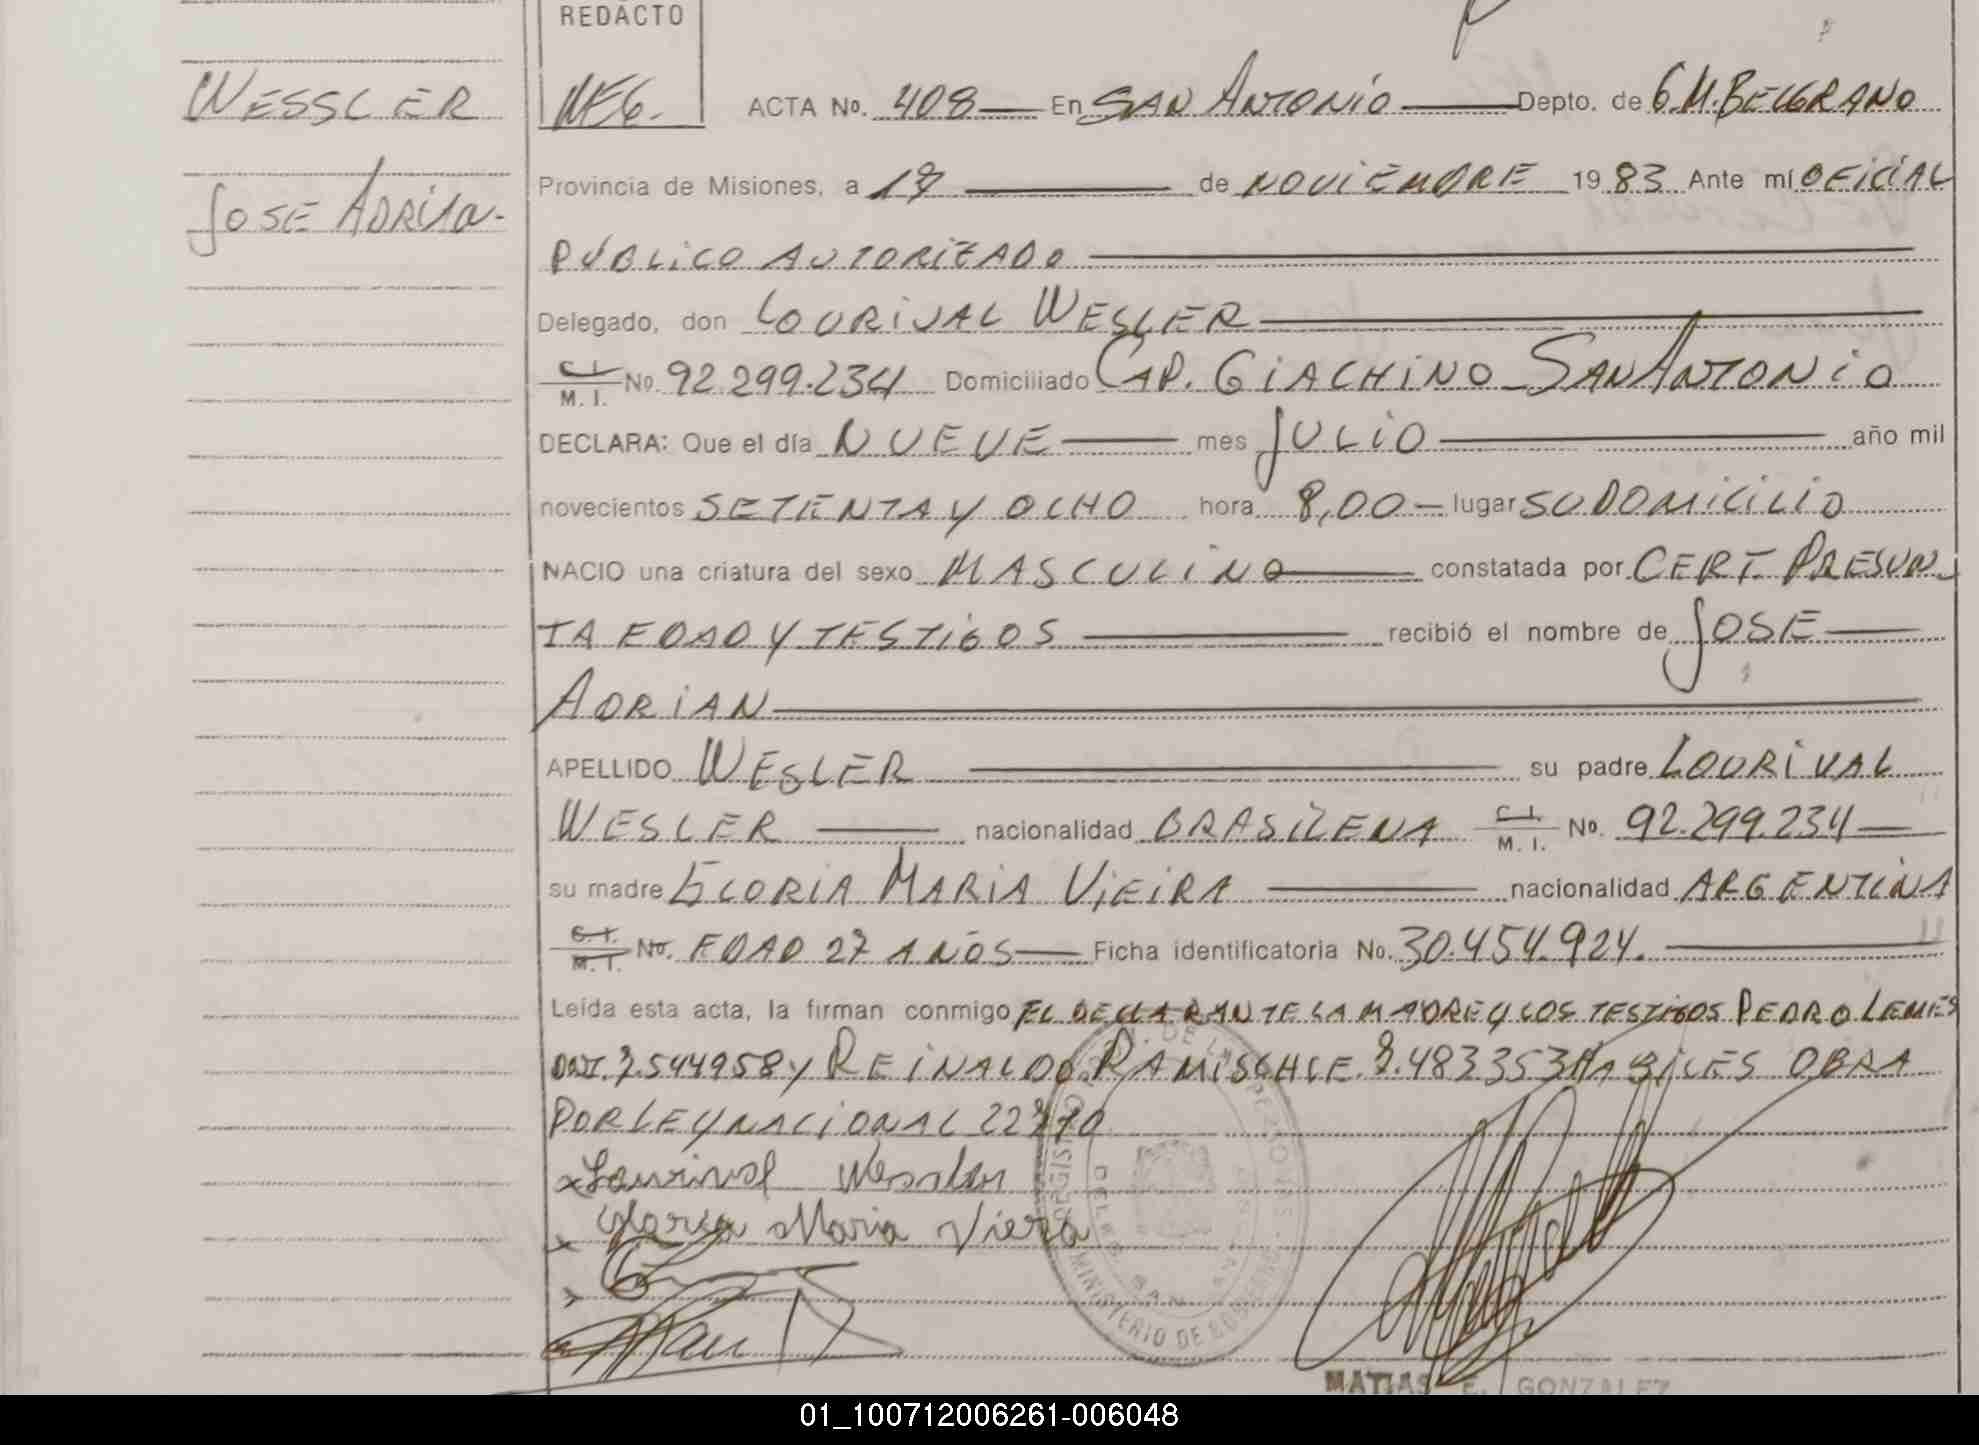 REDACTO
WESSLER
MEG.
ACTA No. 408 En SAN ANTONIO Depto. de G.M.BELGRANO
JOSE ADRIAN-
Provincia de Misiones, a 17 de NOVIEMBRE 1983 Ante mí OFICIAL
PUBLICO AUTORIZADO
Delegado, don LOURIVAL WESLER
C.I. M. I. No. 92.299.234 Domiciliado CAP. GIACHINO SAN ANTONIO
DECLARA: Que el día NUEVE mes JULIO año mil
novecientos SETENTA Y OCHO hora 8,00 lugar SU DOMICILIO
NACIO una criatura del sexo MASCULINO constatada por CERT. PRESUN-
TA EDAD Y TESTIGOS recibió el nombre de JOSE
ADRIAN
APELLIDO WESLER su padre LOURIVAL
WESLER nacionalidad BRASILENA C.I. M. I. No. 92.299.234
su madre GLORIA MARIA VIEIRA nacionalidad ARGENTINA
C.I. M.I. No. EDAD 27 AÑOS Ficha identificatoria No. 30.454.924.
Leída esta acta, la firman conmigo EL DECLARANTE LA MADRE Y LOS TESTIGOS PEDRO LEMES
DNI. 7.544958 Y REINALDO RAMISCHLE. 8.483353 HABILES OBRA
POR LEY NACIONAL 22770
x Lourival Wessler
x Gloria Maria Viera
x
REGISTRO DE LAS PERSONAS
DELEG. SAN
MINISTERIO DE GOBIERNO
MATIAS E. GONZALEZ
01_100712006261-006048